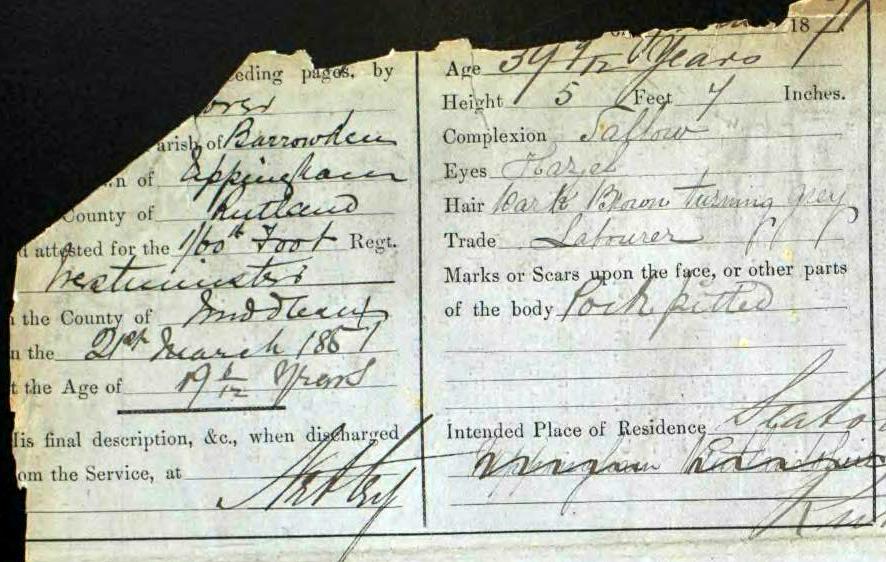 18 71
eding pages, by
arish of Barrowden
n of Uppingham
County of Rutland
d attested for the 1/60th Foot Regt.
Westminster
n the County of Middlesex
n the 21st March 1851
t the Age of 19 6/12 Years
His final description, &c., when discharged
om the Service, at
Netley
Age 39 9/12 Years
Height 5 Feet 7 Inches.
Complexion Sallow
Eyes Hazel
Hair Dark Brown turning grey
Trade Labourer
Marks or Scars upon the face, or other parts
of the body Pock pitted
Intended Place of Residence